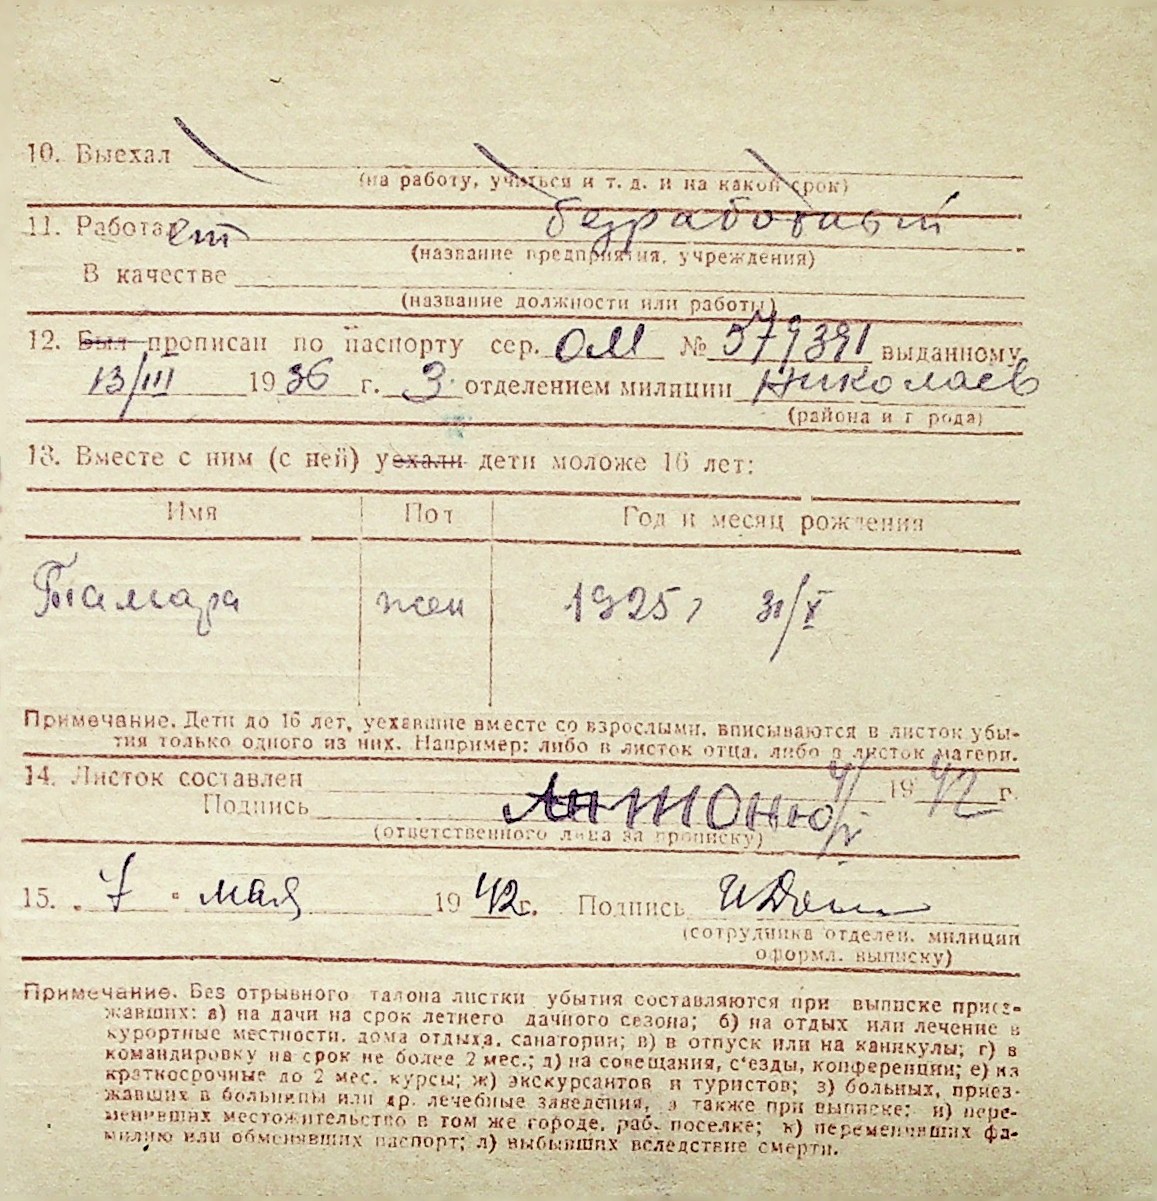 10. Выехал
(на работу, учиться и т. д. и на какой срок)
безработный
11. Работает
(название предприятия, учреждения)
В качестве
(название должности или работы)
12. Был прописан по паспорту сер. ОМ № 579391 выданному
13/III 1936 г. 3 отделением милиции Николаев
(района и города)
13. Вместе с ним (с ней) уехали дети моложе 16 лет:
Имя Пол Год и месяц рождения
Тамара жен 1925 г 31/X
Примечание. Дети до 16 лет, уехавшие вместе со взрослыми, вписываются в листок убы-
тия только одного из них. Например: либо в листок отца, либо в листок матери.
14. Листок составлен 4/V 1942 г.
Подпись
(ответственного лица за прописку)
15. 7 " мая 1942 г. Подпись
(сотрудника отделен. милиции
оформл. выписку)
Примечание. Без отрывного талона листки убытия составляются при выписке приез-
жавших: а) на дачи на срок летнего дачного сезона; б) на отдых или лечение в
курортные местности, дома отдыха, санатории; в) в отпуск или на каникулы; г) в
командировку на срок не более 2 мес.; д) на совещания, с'езды, конференции; е) на
краткосрочные до 2 мес. курсы; ж) экскурсантов и туристов; з) больных, приез-
жавших в больницы или др. лечебные заведения, а также при выписке: и) пере-
менивших местожительство в том же городе, раб. поселке; к) переменивших фа-
милию или обменявших паспорт; л) выбывших вследствие смерти.